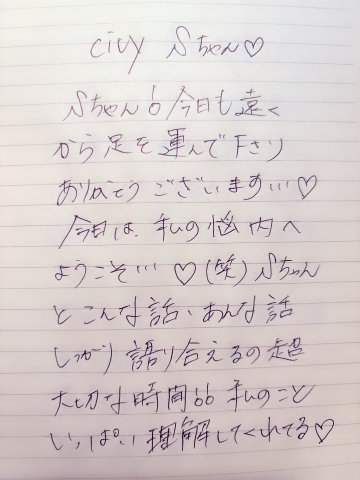 city Sちゃん♡
Sちゃん!今日も遠く
から足を運んで下さり
ありがとうございます…♡
今日は、私の脳内へ
ようこそ…♡(笑)Sちゃん
とこんな話、あんな話
しっかり語り合えるの超
大切な時間!!私のこと
いっぱい理解してくれてる♡